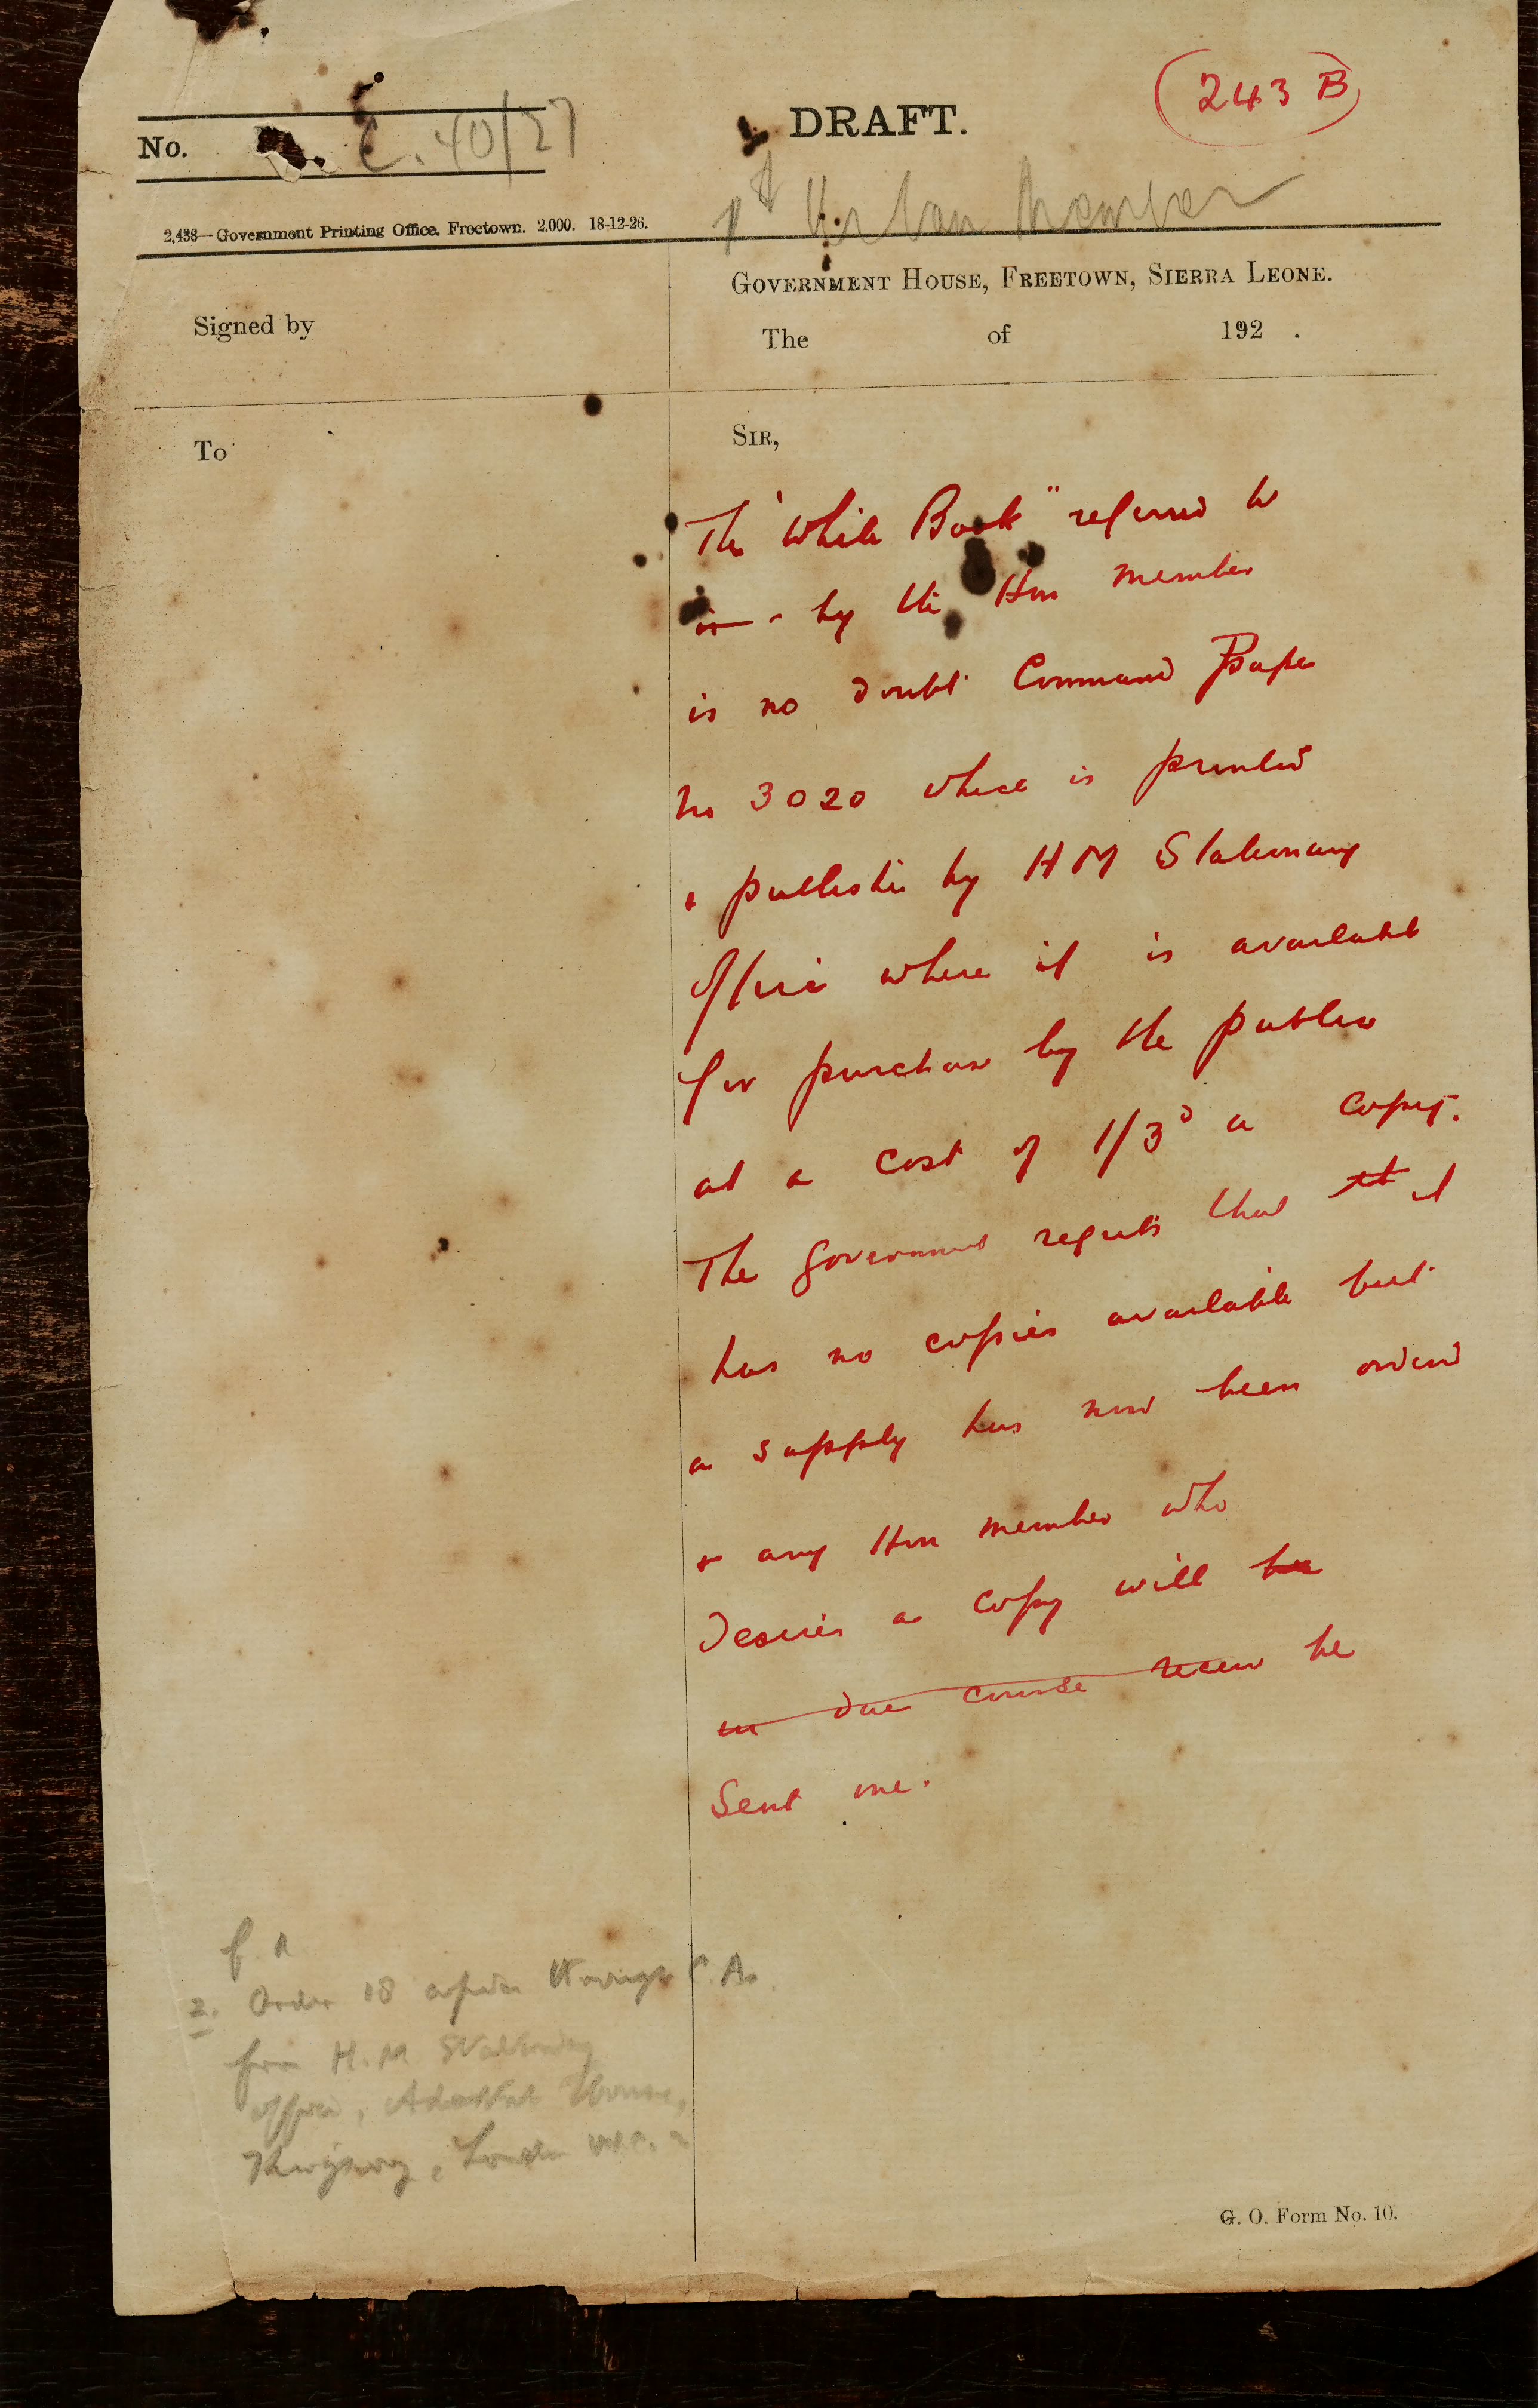 (243 B)
DRAFT.
No. E. 40/27
1st Urban Member
2,438—Government Printing Office, Freetown. 2,000. 18-12-26.
GOVERNMENT HOUSE, FREETOWN, SIERRA LEONE.
Signed by
The of 192 .
To
SIR,
The "White Book" referred to
is - by the Hon member
is no doubt Command Paper
No 3020 which is printed
& published by HM Stationary
Office where it is available
for purchase by the public
at a cost of 1/3d a copy.
The Government regrets that it it
has no copies available but
a supply has now been ordered
& any Hon member who
desires a copy will be
in due course receive be
sent one.
2. Order 18 copies through C.A.
from H.M. Stationery
Office, Adastral House,
Kingsway, London W.C.2
G. O. Form No. 10.